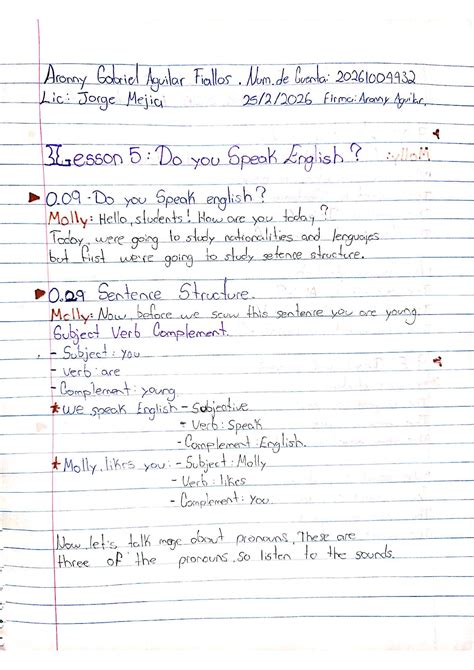 Aronny Gabriel Aguilar Fiallos. Num. de Cuenta: 20261004932
Lic: Jorge Mejia 25/2/2026 Firma: Aronny Aguilar.
Lesson 5: Do you Speak English?
0.09 - Do you Speak english?
Molly: Hello, students! How are you today?
Today, we're going to study nationalities and lenguajes
but first we're going to study setence structure.
0.29 Sentence Structure.
Molly: Now, before we saw this sentence you are young.
Subject Verb Complement.
- Subject: you
- Verb: are
- Complement: young.
* We speak English - Subjective
- Verb: Speak
- Complement: English.
* Molly, likes you: - Subject: Molly
- Verb: likes
- Complement: you.
Now, let's talk more about pronouns, These are
three of the pronouns, so listen to the sounds.